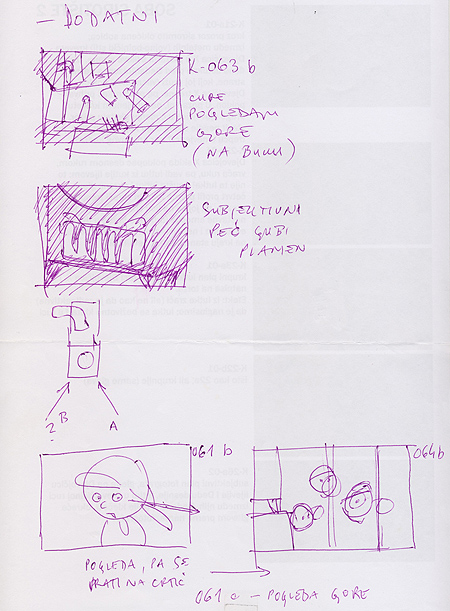 - DODATNI
K-063 b
CURE
POGLEDAJU
GORE
(NA BUKU)
SUBJEKTIVNI
PEĆ GUBI
PLAMEN
B
A
061 b
064 b
POGLEDA, PA SE
VRATI NA CRTIĆ
061 c - POGLEDA GORE